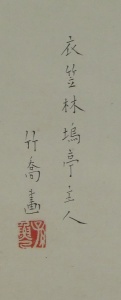 衣笠林塢亭主人
竹喬畫